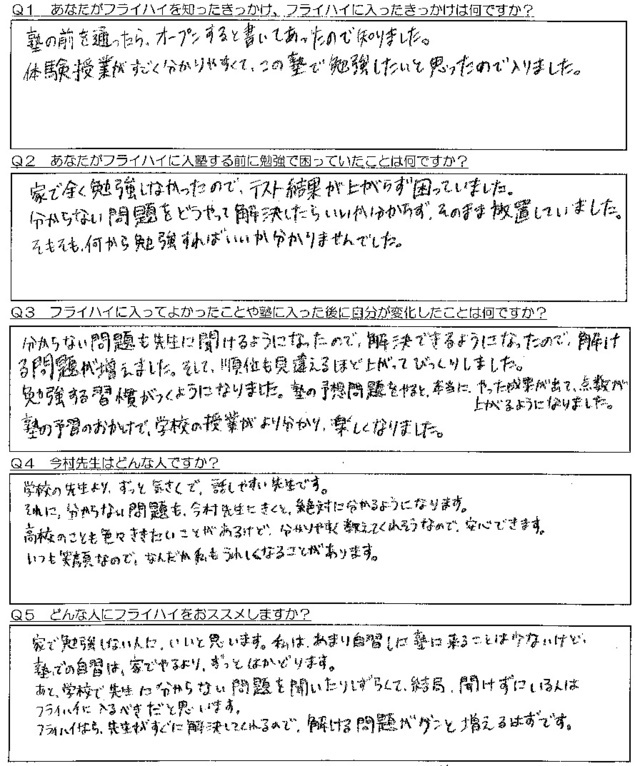 Q1 あなたがフライハイを知ったきっかけ、フライハイに入ったきっかけは何ですか?
塾の前を通ったら、オープンすると書いてあったので知りました。
体験授業がすごく分かりやすくて、この塾で勉強したいと思ったので入りました。
Q2 あなたがフライハイに入塾する前に勉強で困っていたことは何ですか?
家で全く勉強しなかったので、テスト結果が上がらず困っていました。
分からない問題をどうやって解決したらいいか分からず、そのまま放置していました。
そもそも、何から勉強すればいいか分かりませんでした。
Q3 フライハイに入ってよかったことや塾に入った後に自分が変化したことは何ですか?
分からない問題も先生に聞けるようになったので、解決できるようになったので、解け
る問題が増えました。そして、順位も見違えるほど上がってびっくりしました。
勉強する習慣がつくようになりました。塾の予想問題をやると、本当に、やった成果が出て、点数が
上がるようになりました。
塾の予習のおかげで、学校の授業がより分かり、楽しくなりました。
Q4 今村先生はどんな人ですか?
学校の先生より、ずっと気さくで、話しやすい先生です。
それに、分からない問題も、今村先生にきくと、絶対に分かるようになります。
高校のことも色々ききたいことがあるけど、分かりやすく教えてくれそうなので、安心できます。
いつも笑顔なので、なんだか私もうれしくなることがあります。
Q5 どんな人にフライハイをおススメしますか?
家で勉強しない人に、いいと思います。私は、あまり自習しに塾に来ることは少ないけど、
塾での自習は、家でやるより、ずっとはかどります。
あと、学校で先生に分からない問題を聞いたりしずらくて、結局、聞けずにいる人は
フライハイに入るべきだと思います。
フライハイなら、先生がすぐに解決してくれるので、解ける問題がグンと増えるはずです。